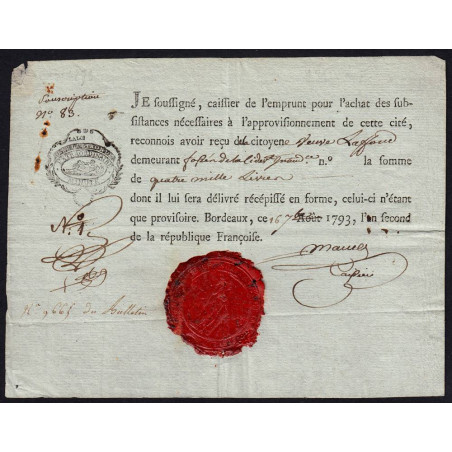 Souscription
N.o 83.
JE soussigné, caissier de l'emprunt pour l'achat des sub-
sistances nécessaires à l'approvisionnement de cette cité,
reconnois avoir reçu de la citoyenne veuve Laffard
demeurant n.o la somme
de quatre mille Livres
dont il lui sera délivré récépissé en forme, celui-ci n'étant
que provisoire. Bordeaux, ce 16 7bre Août 1793, l'an second
de la république Françoise.
N.o 1
Caissier
N.o 566 du Bulletin